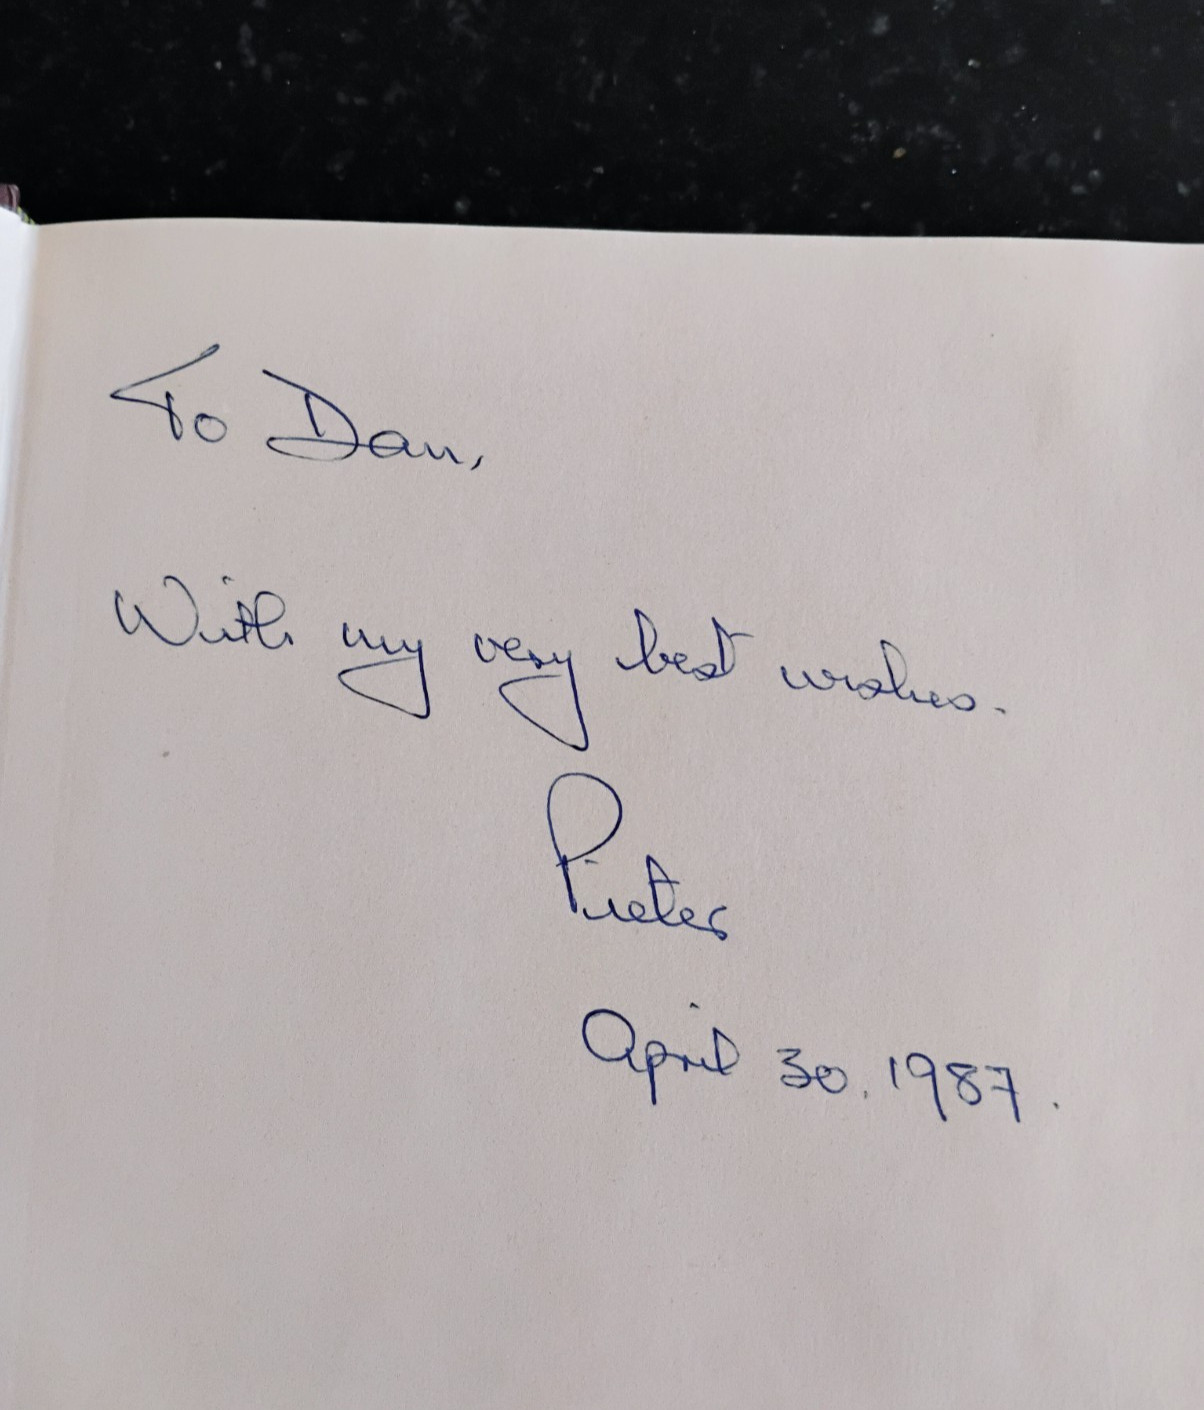 To Dan,
With my very best wishes.
Pieter
April 30. 1987.